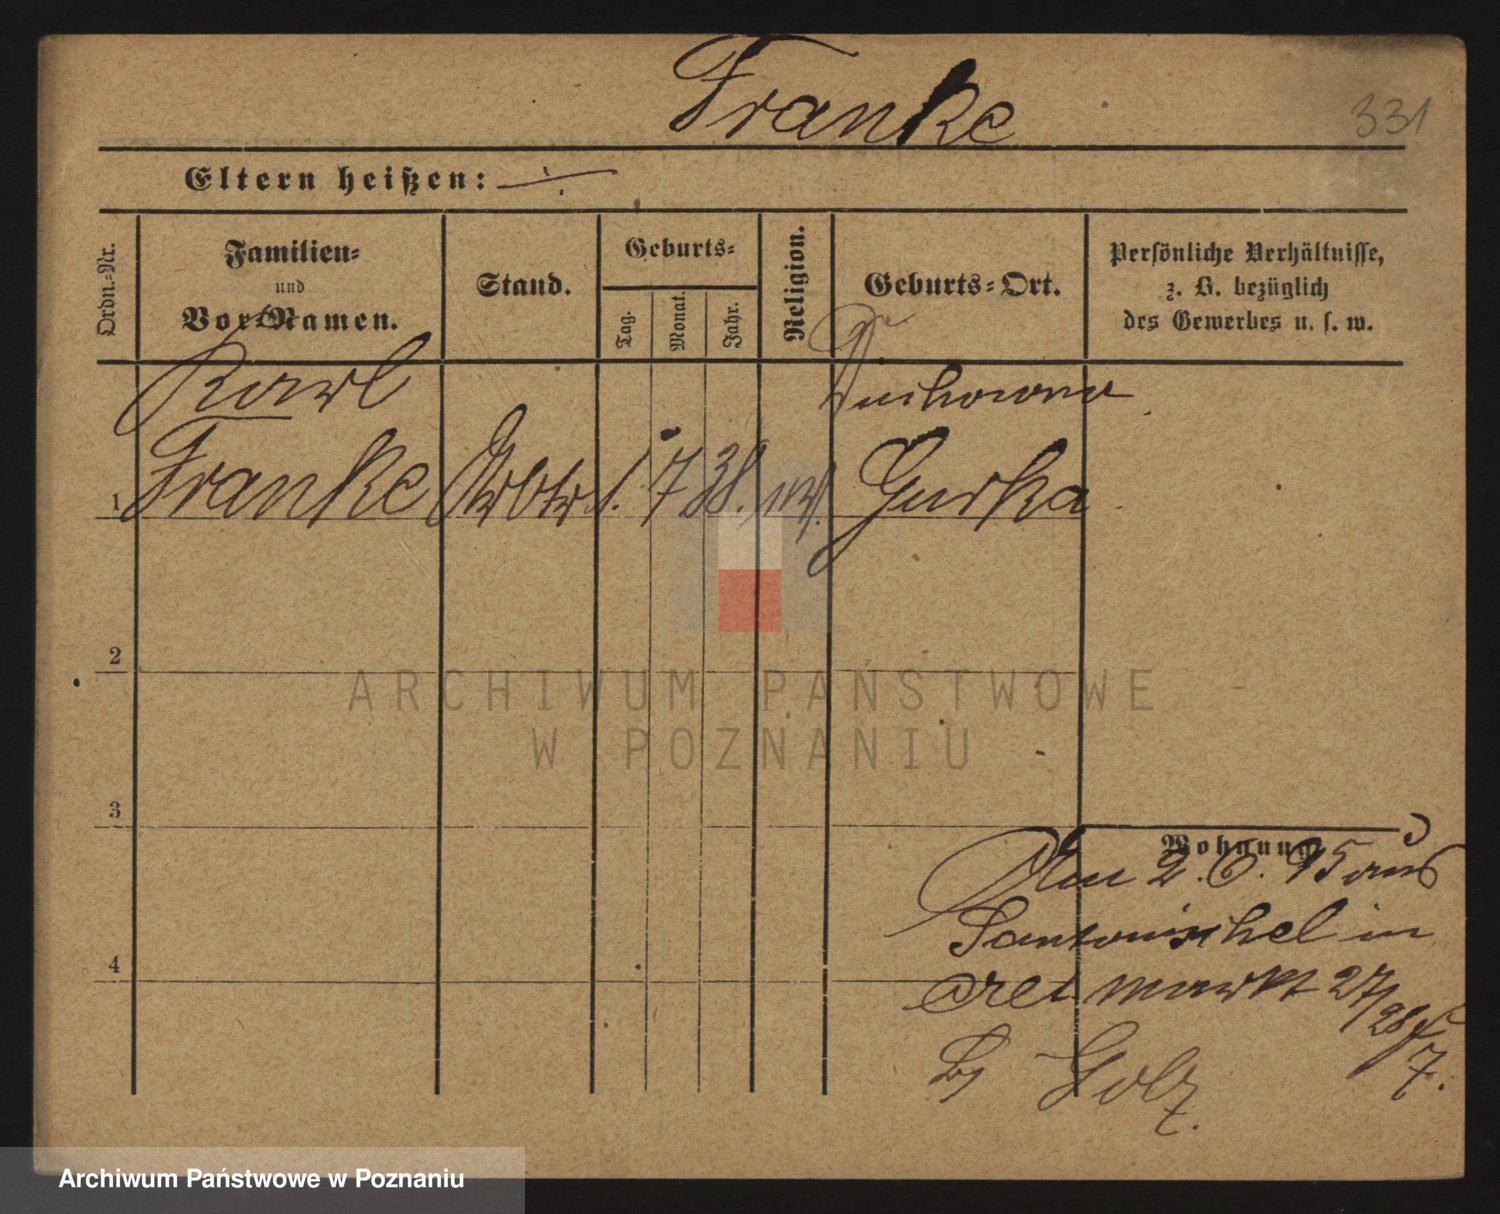 Franke
331
Eltern heißen: ÷
Ordn.-Nr.
Familien-
und
Vor-Namen.
Stand.
Geburts-
Tag.
Monat.
Jahr.
Religion.
Geburts-Ort.
Persönliche Verhältnisse,
z. B. bezüglich
des Gewerbes u. s. w.
Karl
1 Franke Arbtr 1. 7 38. Gurka
2
3
4
Wohnung
Am 2. 6. 95 aus
in
markt 27/28
7.
b/ Golz.
ARCHIWUM PAŃSTWOWE
W POZNANIU
Archiwum Państwowe w Poznaniu